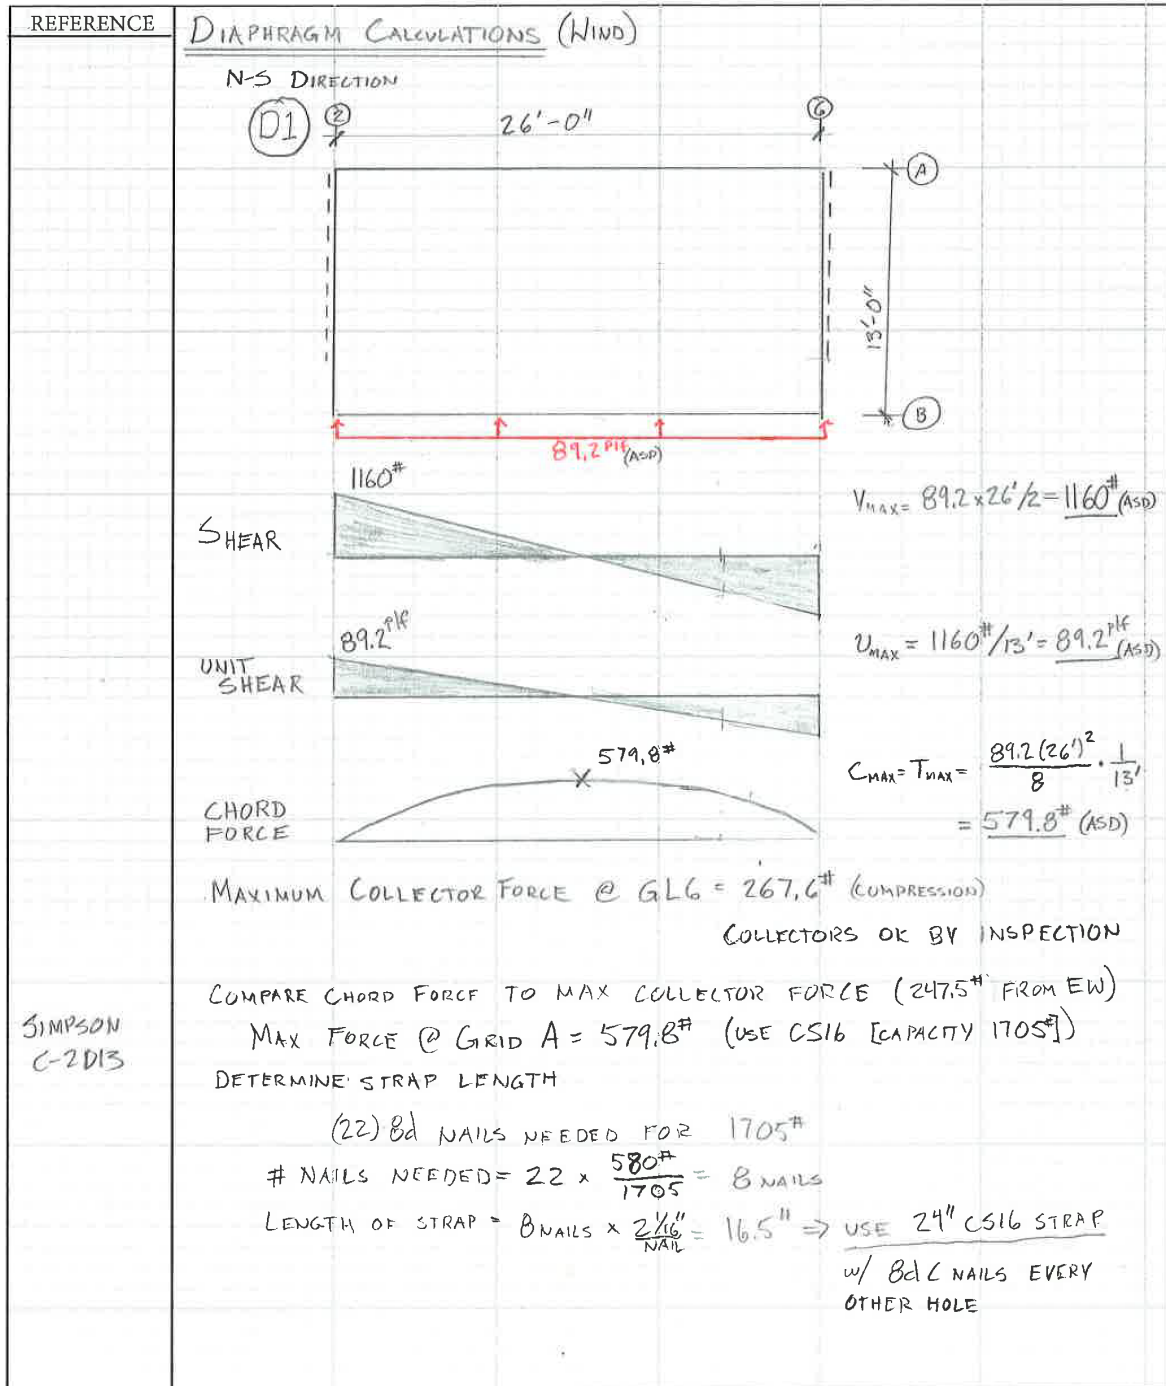 REFERENCE
DIAPHRAGM CALCULATIONS (WIND)
N-S DIRECTION
D1
2
26'-0"
6
A
13'-0"
B
89.2 plf (ASD)
1160#
SHEAR
VMAX = 89.2 x 26'/2 = 1160# (ASD)
89.2 plf
UNIT SHEAR
υMAX = 1160#/13' = 89.2 plf (ASD)
579.8#
CHORD FORCE
CMAX = TMAX = 89.2(26')²/8 · 1/13'
= 579.8# (ASD)
MAXIMUM COLLECTOR FORCE @ GL6 = 267.6# (COMPRESSION)
COLLECTORS OK BY INSPECTION
COMPARE CHORD FORCE TO MAX COLLECTOR FORCE (247.5# FROM EW)
SIMPSON
C-2D13
MAX FORCE @ GRID A = 579.8# (USE CS16 [CAPACITY 1705#])
DETERMINE STRAP LENGTH
(22) 8d NAILS NEEDED FOR 1705#
# NAILS NEEDED = 22 x 580#/1705 = 8 NAILS
LENGTH OF STRAP = 8 NAILS x 2 1/16"/NAIL = 16.5" ⇒ USE 24" CS16 STRAP
w/ 8d C NAILS EVERY
OTHER HOLE